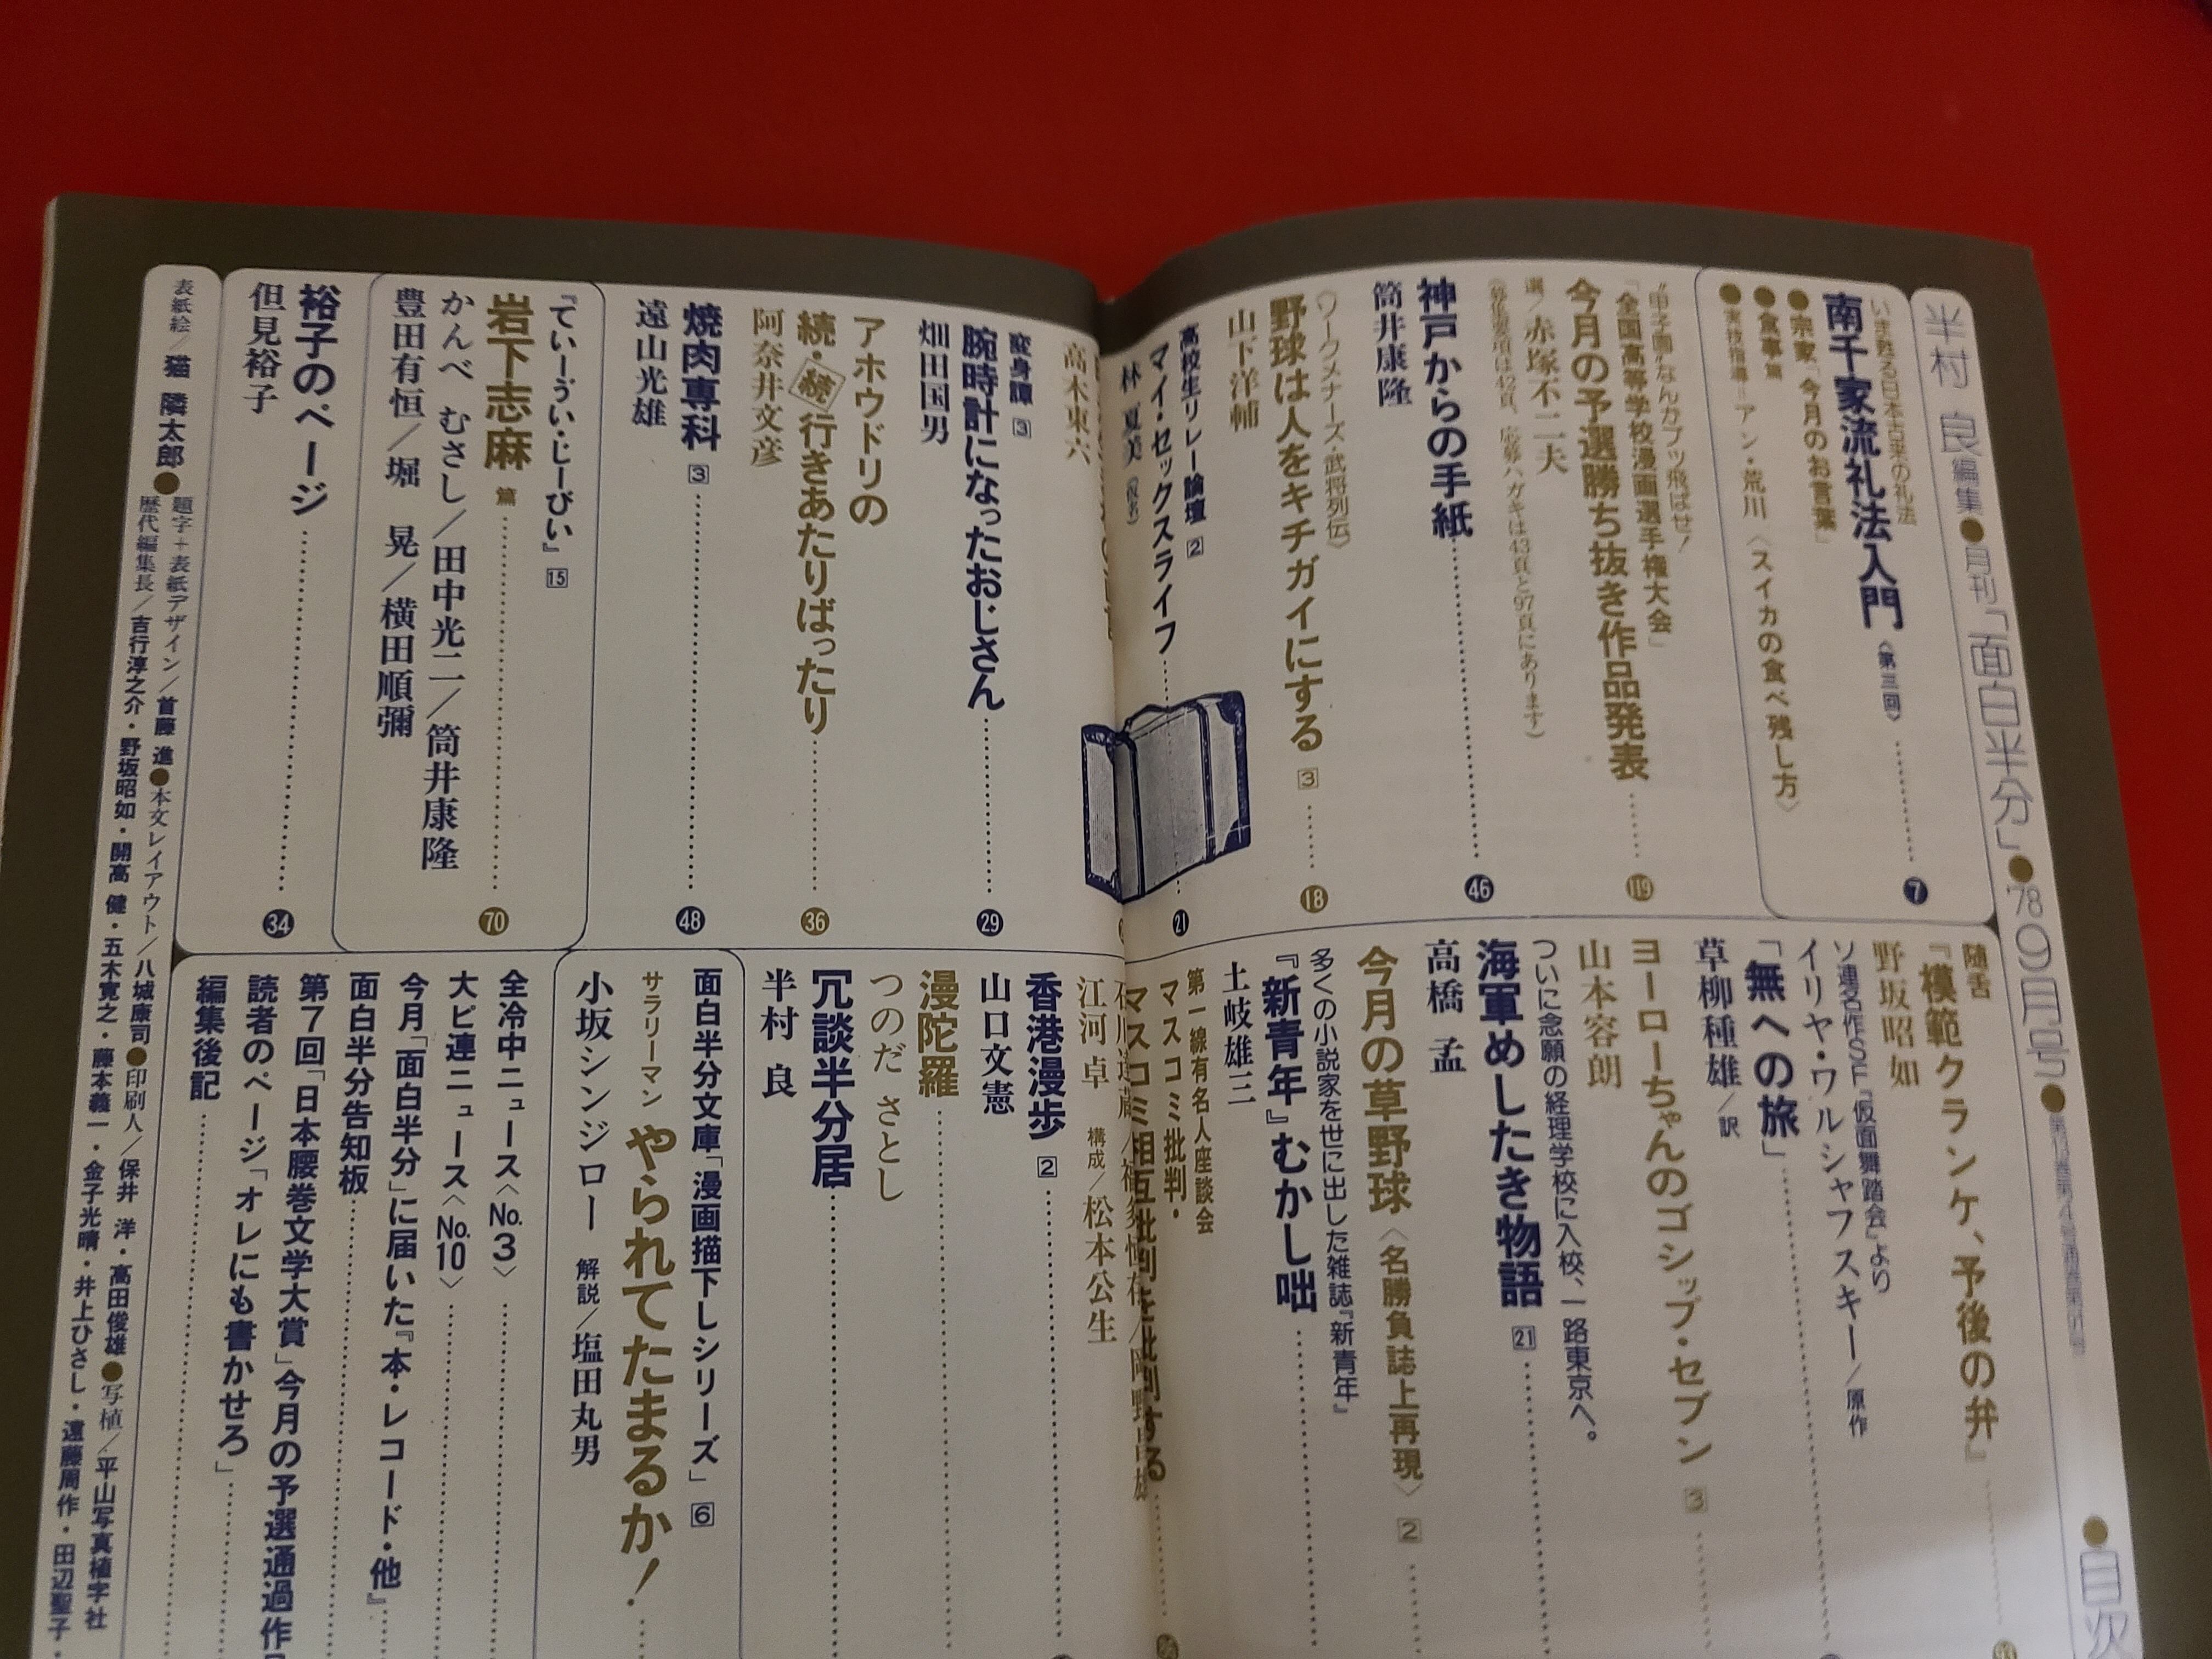 半村 良 編集●月刊「面白半分」●'78 9月号●
●目次
いま甦る日本古来の礼法
南千家流礼法入門〈第三回〉
7
●宗家「今月のお言葉」
●食事篇
●実技指導＝アン・荒川〈スイカの食べ残し方〉
“甲子園”なんかブッ飛ばせ！
「全国高等学校漫画選手権大会」
今月の予選勝ち抜き作品発表
119
選／赤塚不二夫
神戸からの手紙
46
筒井康隆
〈ワークメナーズ・武将列伝〉
野球は人をキチガイにする 3
18
山下洋輔
高校生リレー論壇 2
マイ・セックスライフ
21
林 夏美（仮名）
高木東六
変身譚 3
腕時計になったおじさん
29
畑田国男
アホウドリの
続・続行きあたりばったり
36
阿奈井文彦
焼肉専科 3
48
遠山光雄
『てぃーうぃ・じーびぃ』15
岩下志麻 篇
70
かんべ むさし／田中光二／筒井康隆
豊田有恒／堀 晃／横田順彌
裕子のページ
34
但見裕子
随舌
『模範クランケ、予後の弁』
93
野坂昭如
ソ連名作SF『仮面舞踏会』より
イリヤ・ワルシャフスキー／原作
「無への旅」
草柳種雄／訳
ヨーローちゃんのゴシップ・セブン 3
山本容朗
ついに念願の経理学校に入校、一路東京へ。
海軍めしたき物語 21
高橋 孟
今月の草野球〈名勝負誌上再現〉2
多くの小説家を世に出した雑誌『新青年』
『新青年』むかし咄
土岐雄三
第一線有名人座談会
マスコミ批判・
マスコミ相互批判を批判する
江河 卓 構成／松本公生
香港漫歩 2
山口文憲
漫陀羅
つのだ さとし
冗談半分居
半村 良
面白半分文庫「漫画描下しシリーズ」6
サラリーマン やられてたまるか！
小坂シンジロー 解説／塩田丸男
全冷中ニュース〈No.3〉
大ピ連ニュース〈No.10〉
今月「面白半分」に届いた『本・レコード・他』
面白半分告知板
第7回「日本腰巻文学大賞」今月の予選通過作
読者のページ「オレにも書かせろ」
編集後記
表紙絵／猫 隣太郎●題字＋表紙デザイン／首藤 進●本文レイアウト／八城康司●印刷人／保井 洋・高田俊雄●写植／平山写真植字社
歴代編集長／吉行淳之介・野坂昭如・開高 健・五木寛之・藤本義一・金子光晴・井上ひさし・遠藤周作・田辺聖子・